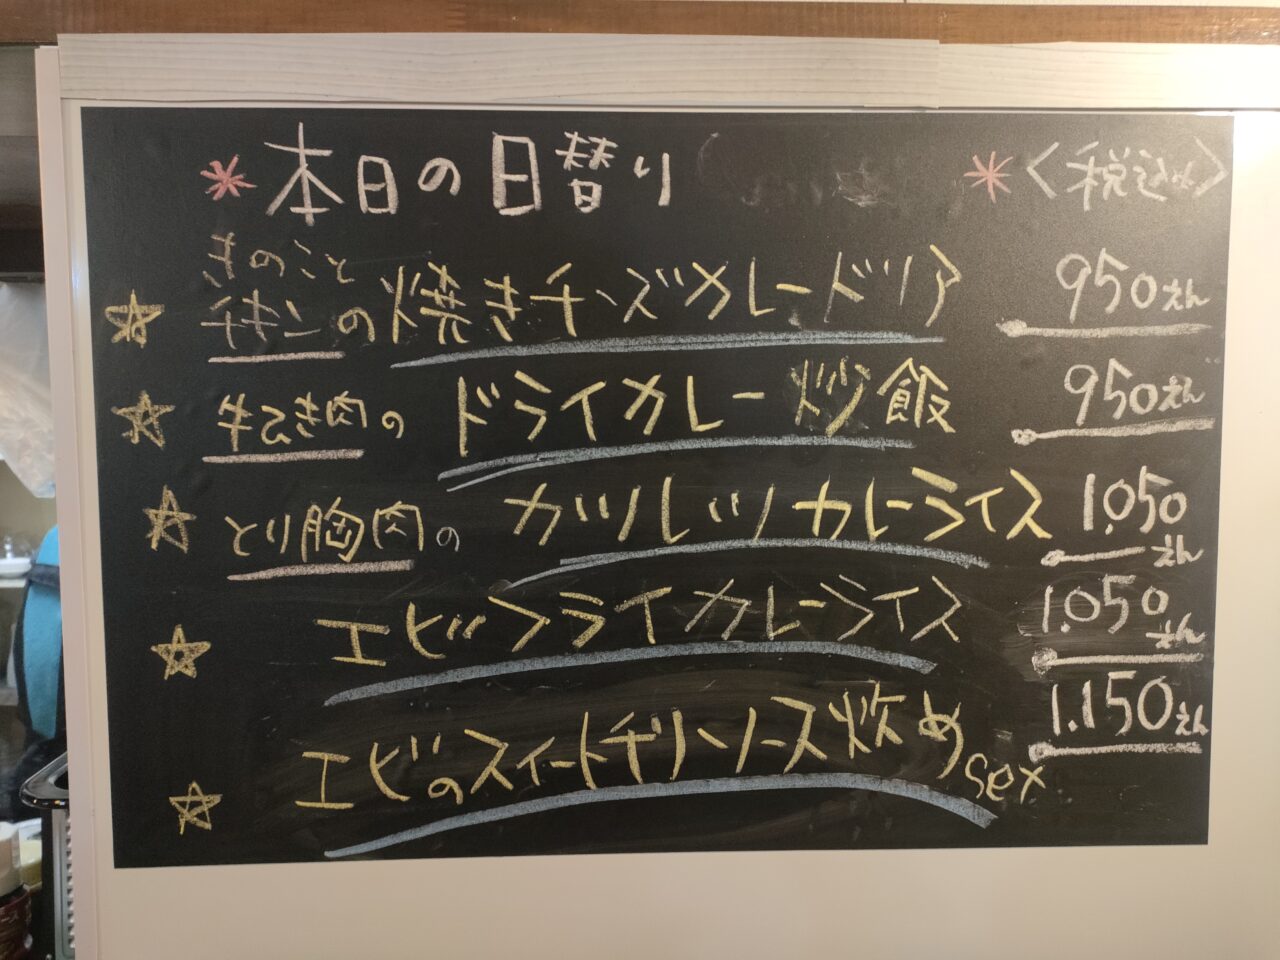 * 本日の日替り * <税込み>
☆ きのことチキンの焼きチーズカレードリア 950えん
☆ 牛ひき肉のドライカレー炒飯 950えん
☆ とり胸肉のカツレツカレーライス 1.050えん
☆ エビフライカレーライス 1.050えん
☆ エビのスイートチリソース炒めsex 1.150えん